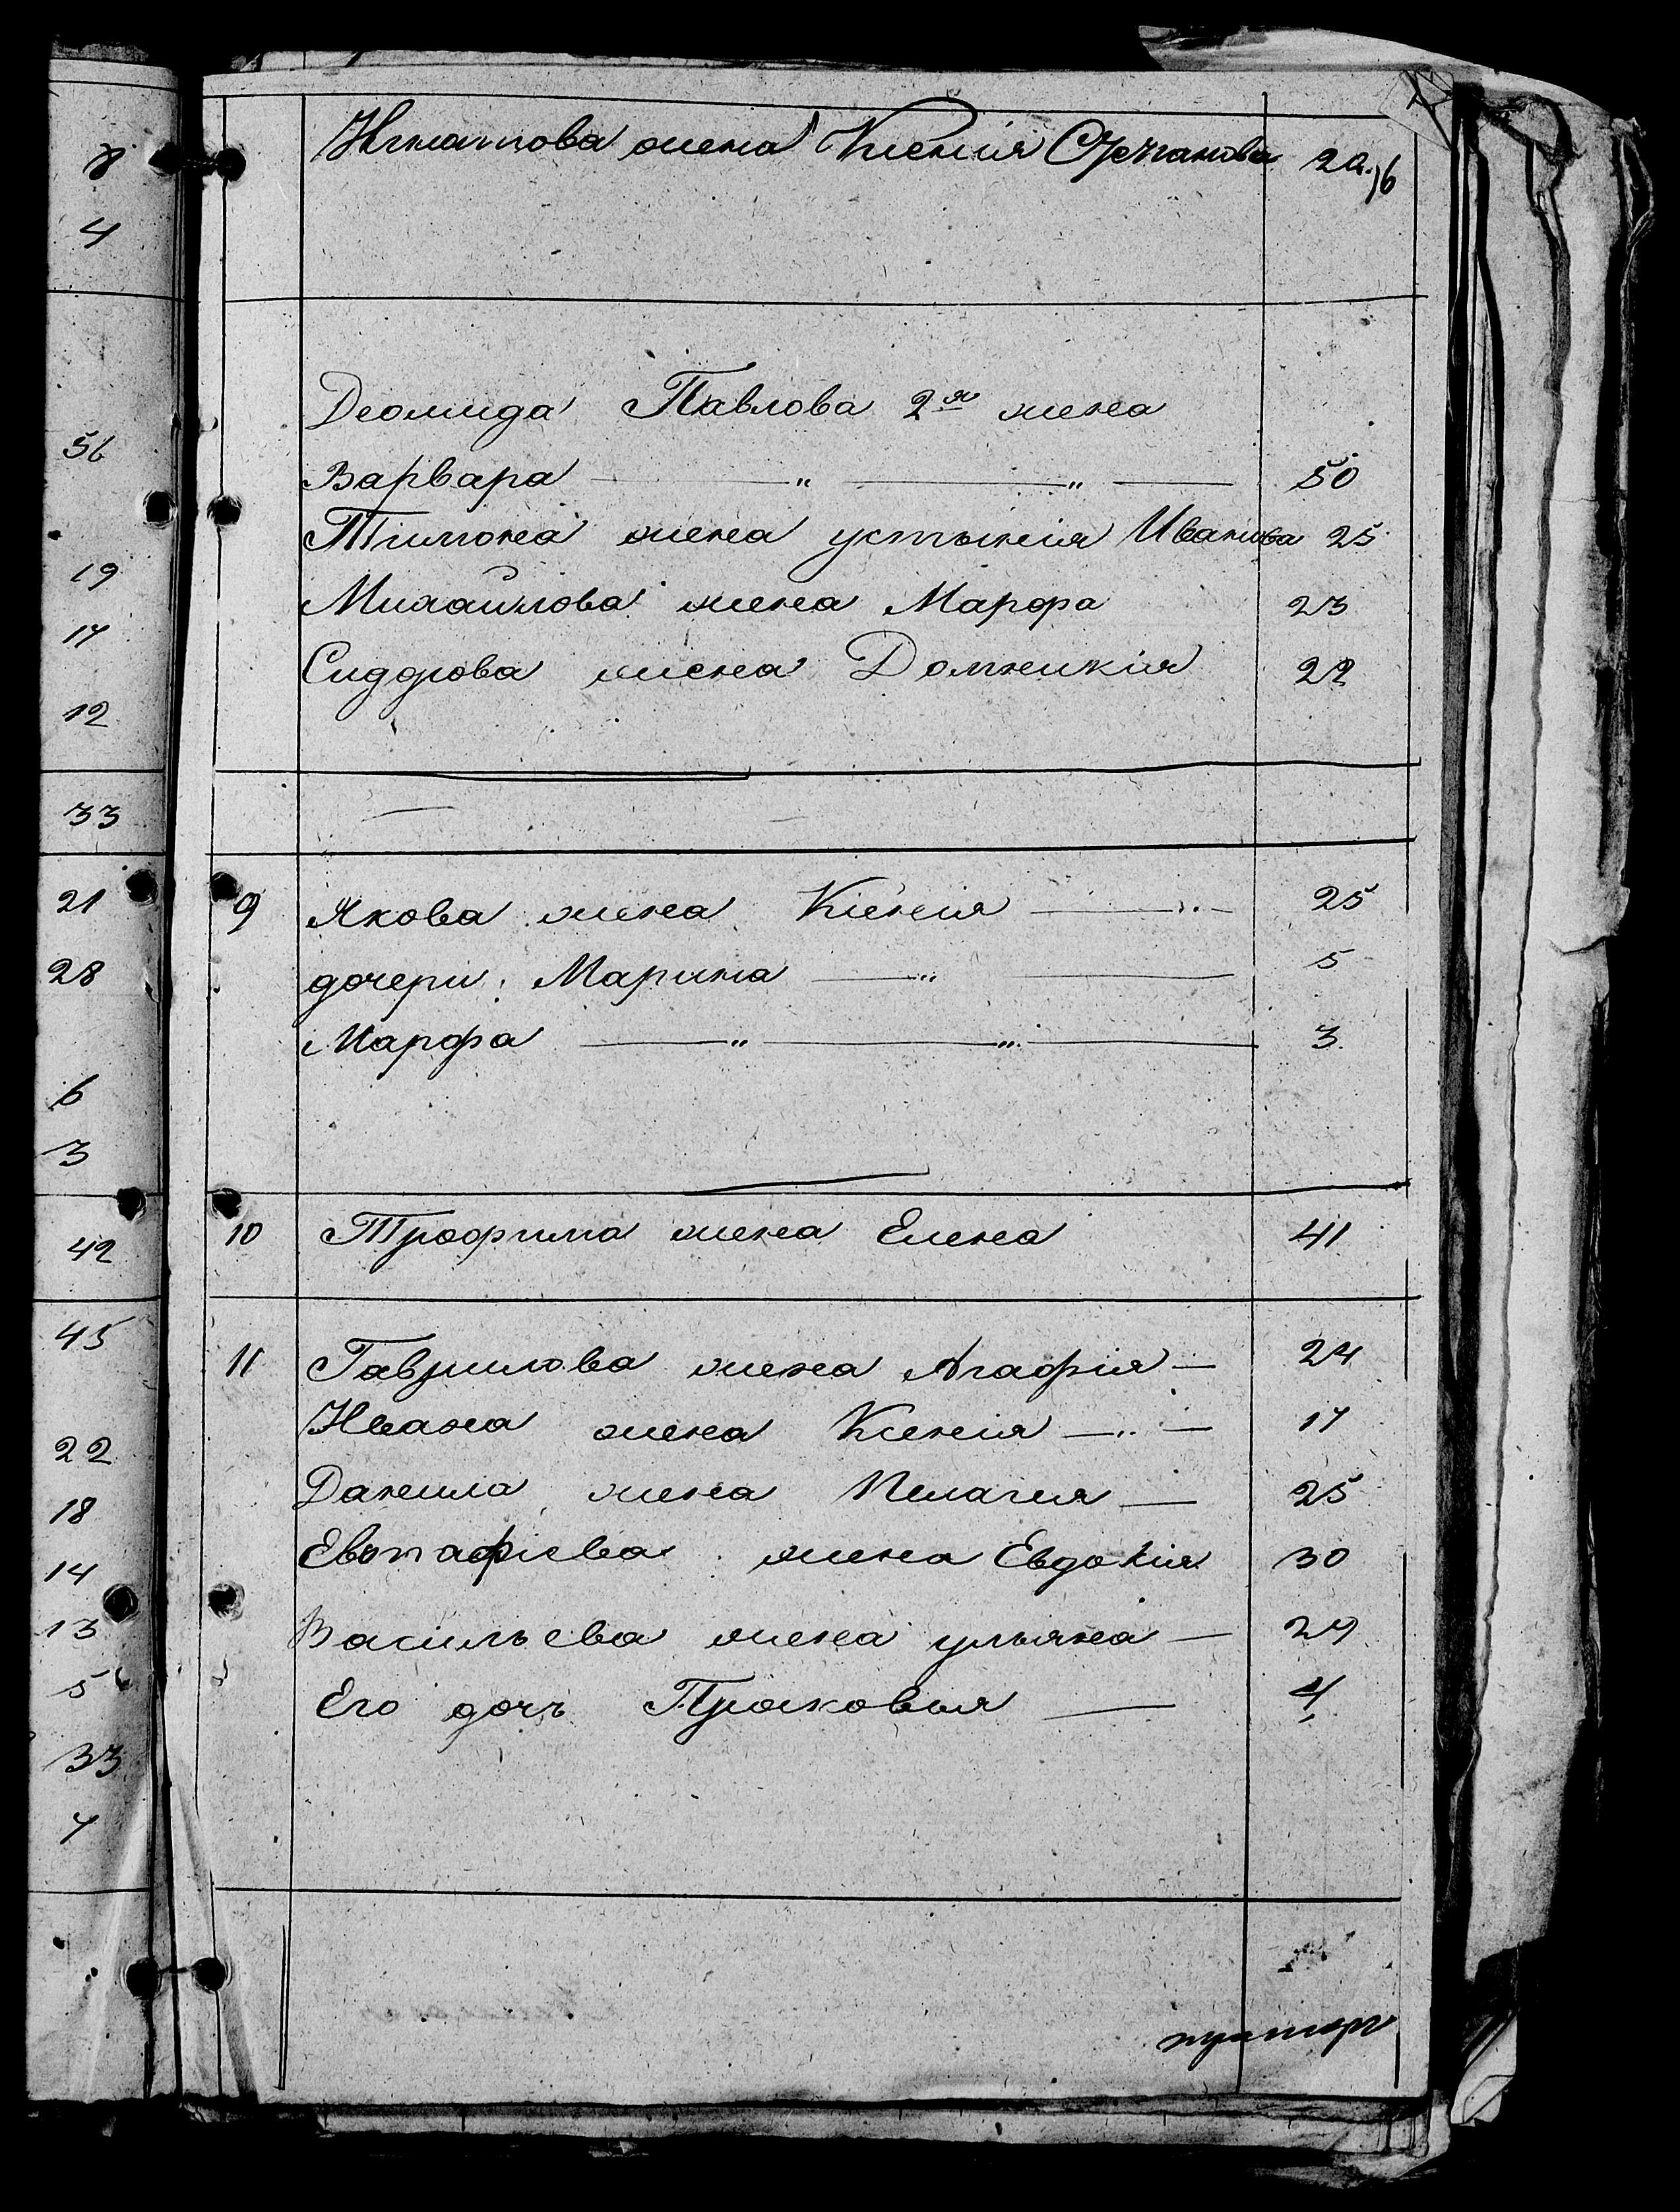 8
4
56
19
17
12
33
21
28
6
3
42
45
22
18
14
13
5
33
7
Игнатова жена Ксенія 20.
Деомида Павлова 2я жена
Варвара — " — " — 50
Тимона жена устинія Иванова 25
Михайлова жена Марфа 23
Сидорова жена Домникія 22
9 Якова жена Ксенія — " — 25
дочери: Марина — " — 5
Марфа — " — " — 3.
10 Трофима жена Елена 41
11 Гаврилова жена Агафія — 24
Ивана жена Ксенія — " — 17
Данила жена Пелагея — 25
Евстафіева жена Евдокія 30
Васильева жена ульяна — 29
Его дочь Прасковья — 4